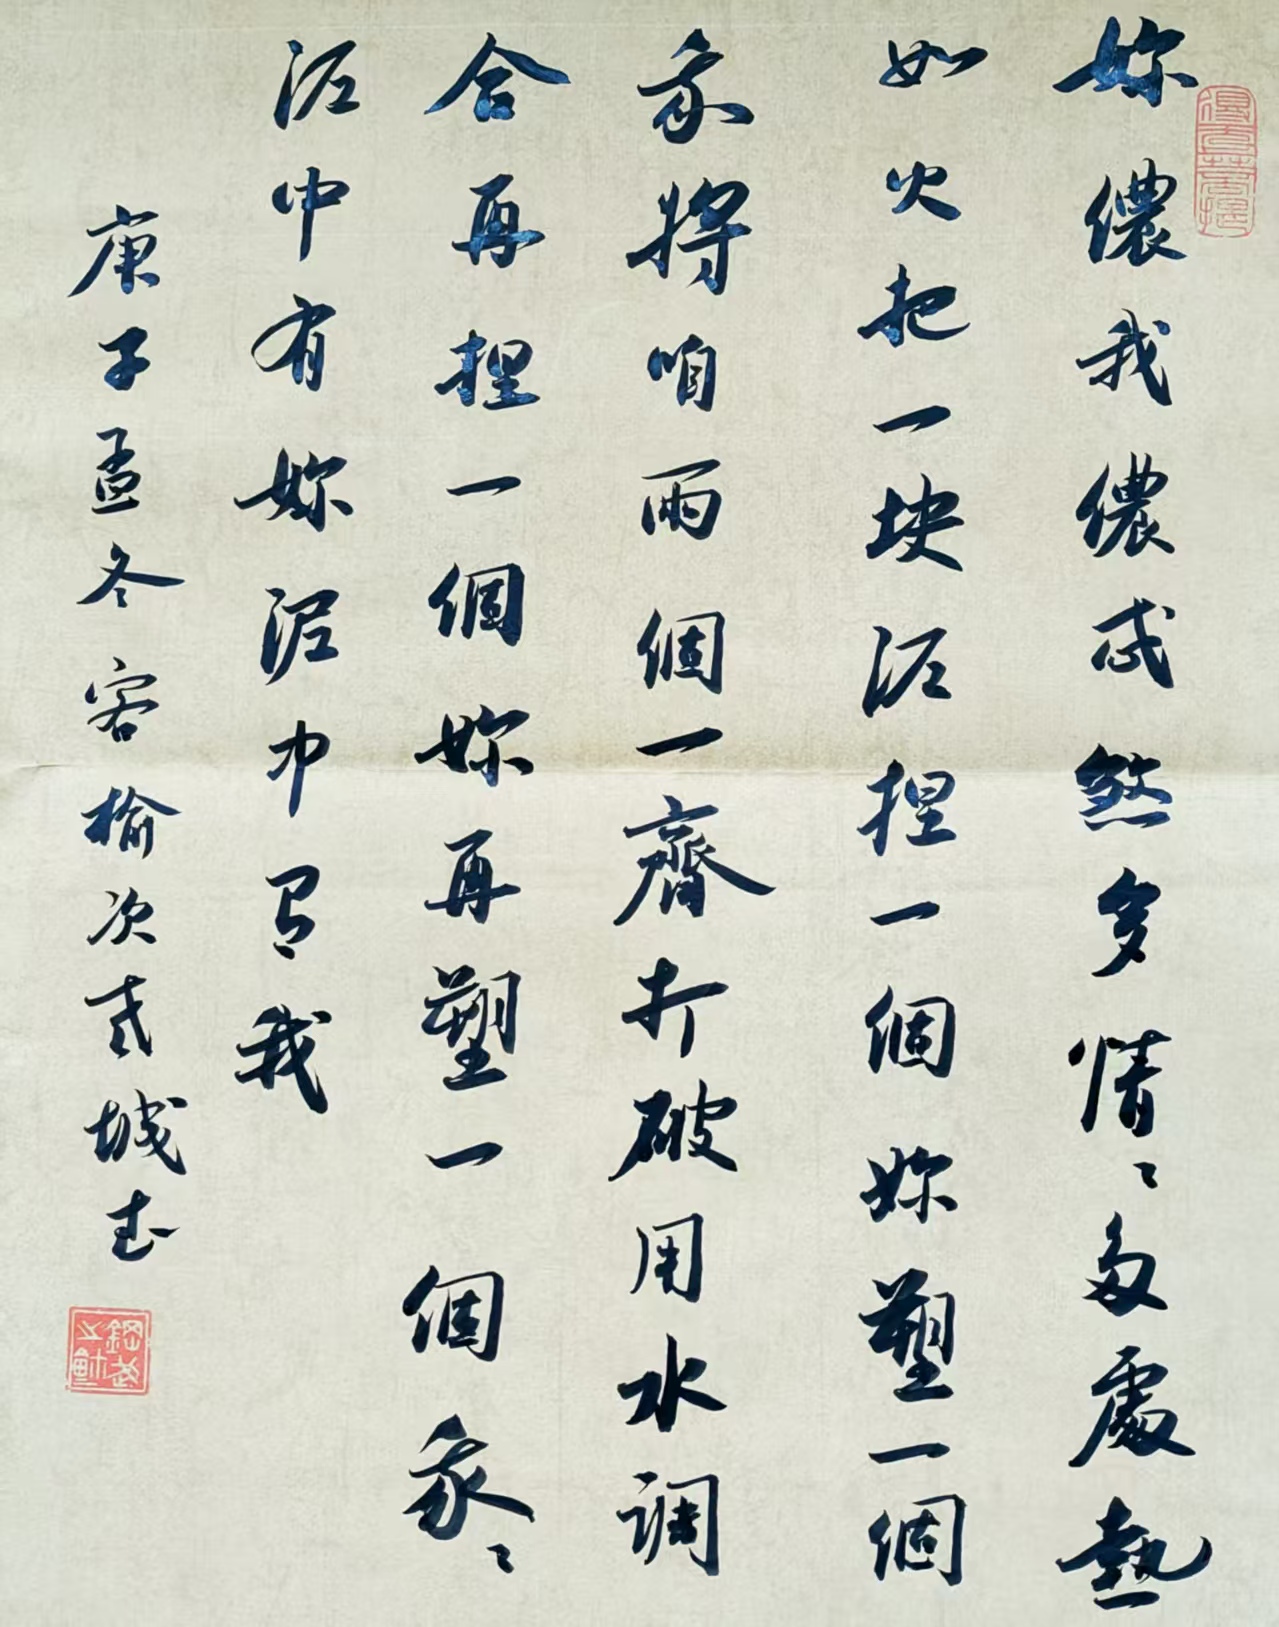 妳儂我儂忒煞多情〻多處熱
如火把一块泥捏一個妳塑一個
我將咱兩個一齊打破用水調
合再捏一個妳再塑一個我〻
泥中有妳泥中有我
庚子孟冬客榆次貳城